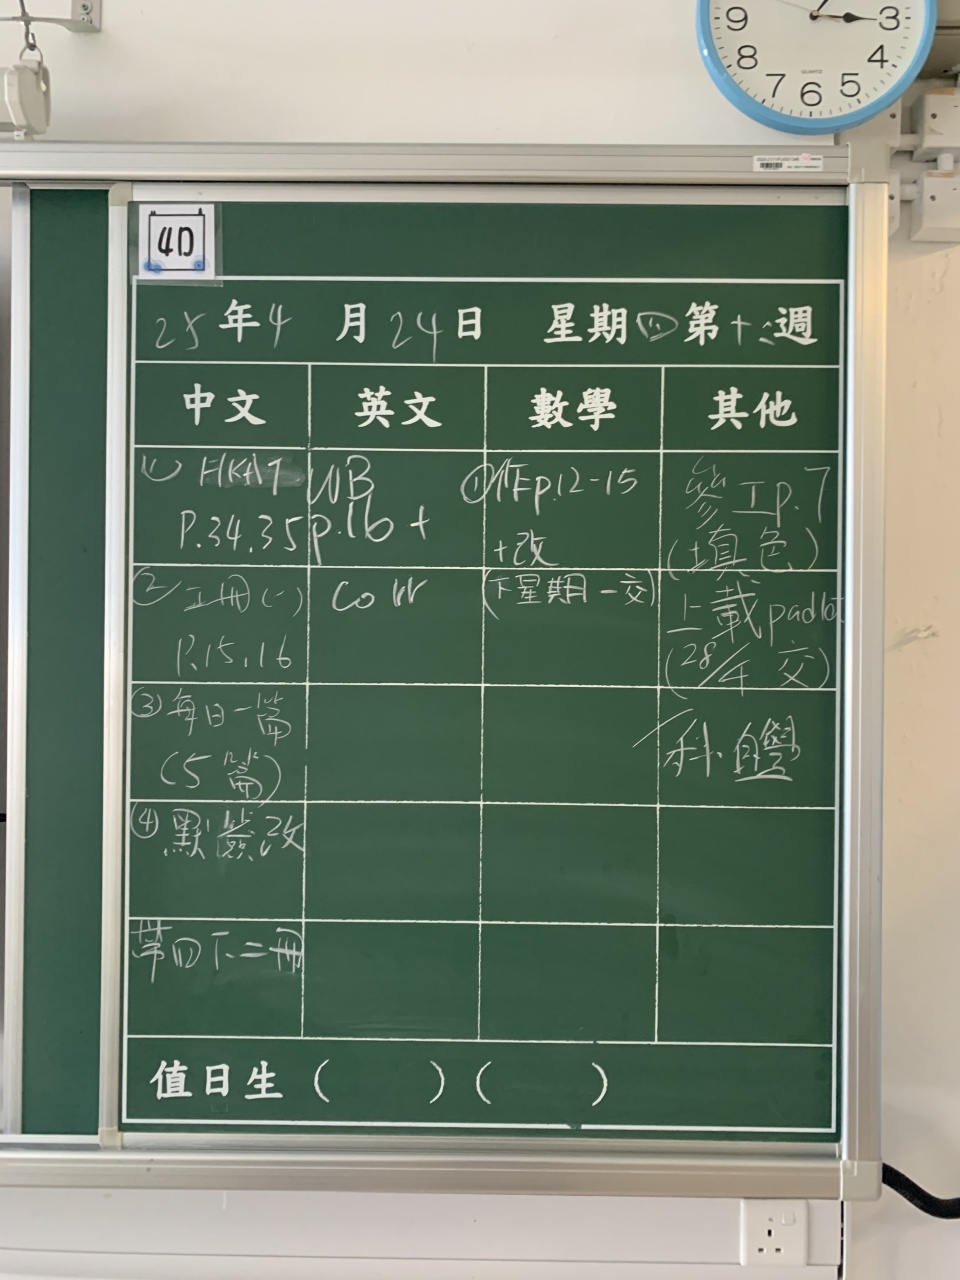 9
3
8
4
7
6
5
QUARTZ
4D
25年4月24日 星期四 第十三週
中文 英文 數學 其他
(1) HKAT
P.34,35
② 工冊(一)
P.15,16
③ 每日一篇
(5篇)
④ 默簽改
帶四下二冊
WB
p.16 +
Corr
①作p.12-15
+改
(下星期一交)
工p.7
(填色)
上載padlet
(28/4 交)
科
值日生 ( ) ( )